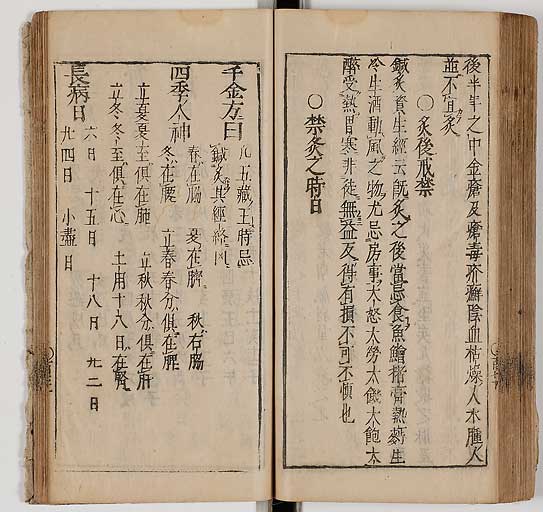 後半年之中金瘡及瘡毒疥癬陰血枯燥人水腫人
並不宜灸
○灸後戒禁
鍼灸資生經云既灸之後當忌食魚鱠猪膏熱麪生
冷生酒動風之物尤忌房事大怒大勞太饑太飽太
醉受熱冒寒非徒無益反得有損不可不慎也
○禁灸之時日
千金方曰 凡五藏王時忌
鍼灸其經絡凶
四季人神 春在脇 夏在臍 秋在脇
冬在腰 立春春分俱在脾
立夏夏至俱在 立秋秋分俱在肝
立冬冬至俱在心 土用十八日在腎
長病日 六日 十五日 十八日 廿二日
廿四日 小盡日